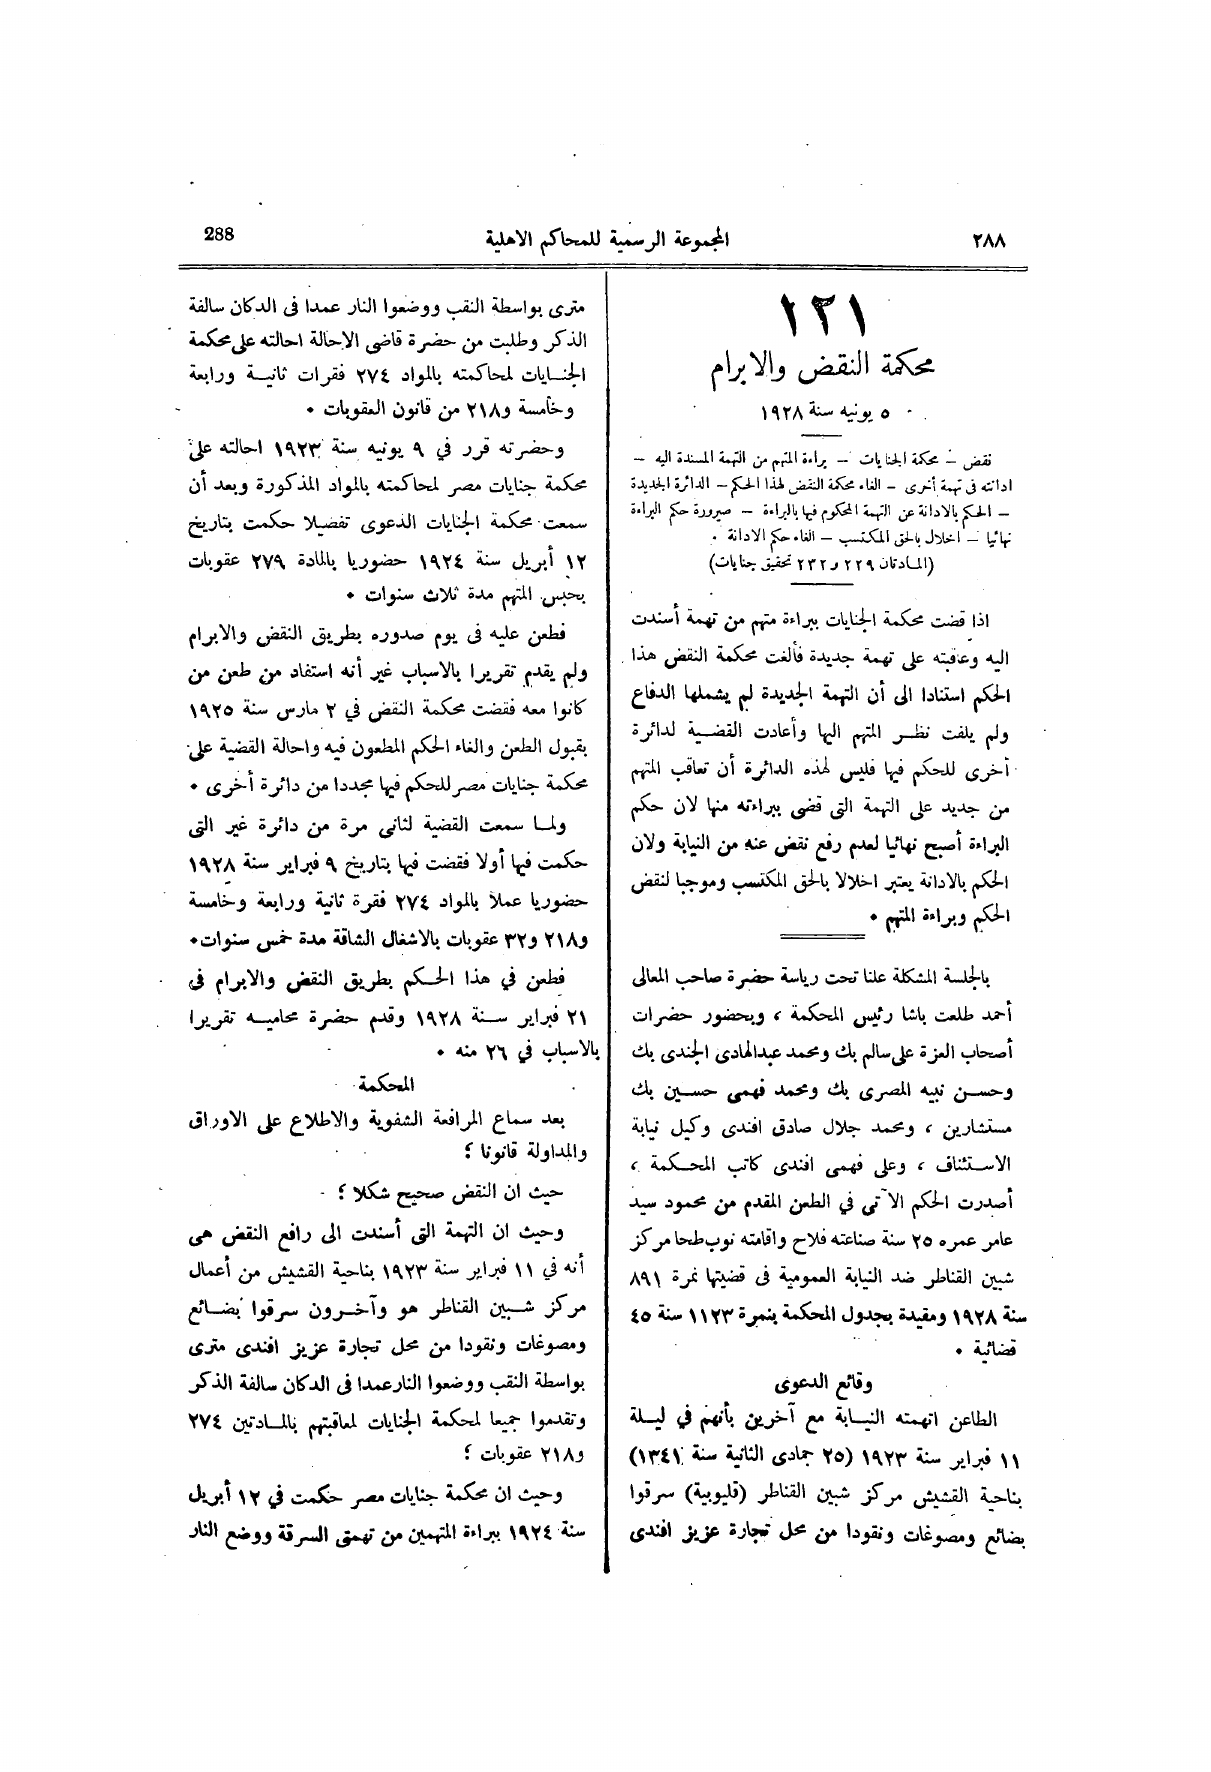 ٢٨٨
المجموعة الرسمية للمحاكم الاهلية
288
١٢١
محكمة النقض والابرام
٥ يونيه سنة ١٩٢٨
نقض – محكمة الجنايات – براءة المتهم من التهمة المسندة اليه –
ادانته فى تهمة أخرى – الغاء محكمة النقض لهذا الحكم – الدائرة الجديدة
– الحكم بالادانة عن التهمة المحكوم فيها بالبراءة – صيرورة حكم البراءة
نهائيا – اخلال بالحق المكتسب – الغاء حكم الادانة .
(المادتان ٢٢٩ و ٢٣٢ تحقيق جنايات)
اذا قضت محكمة الجنايات ببراءة متهم من تهمة أسندت
اليه وعاقبته على تهمة جديدة فألغت محكمة النقض هذا
الحكم استنادا الى أن التهمة الجديدة لم يشملها الدفاع
ولم يلفت نظر المتهم اليها وأعادت القضية لدائرة
أخرى للحكم فيها فليس لهذه الدائرة أن تعاقب المتهم
من جديد على التهمة التى قضى ببراءته منها لان حكم
البراءة أصبح نهائيا لعدم رفع نقض عنه من النيابة ولان
الحكم بالادانة يعتبر اخلالا بالحق المكتسب وموجبا لنقض
الحكم وبراءة المتهم .
بالجلسة المشكلة علنا تحت رياسة حضرة صاحب المعالى
أحمد طلعت باشا رئيس المحكمة ، وبحضور حضرات
أصحاب العزة على سالم بك ومحمد عبد الهادى الجندى بك
وحسن نبيه المصرى بك ومحمد فهمى حسين بك
مستشارين ، ومحمد جلال صادق افندى وكيل نيابة
الاستئناف ، وعلى فهمى افندى كاتب المحكمة ،
أصدرت الحكم الآتى في الطعن المقدم من محمود سيد
عامر عمره ٢٥ سنة صناعته فلاح واقامته نوب طحا مركز
شبين القناطر ضد النيابة العمومية فى قضيتها نمرة ٨٩١
سنة ١٩٢٨ ومقيدة بجدول المحكمة بنمرة ١١٢٣ سنة ٤٥
قضائية .
وقائع الدعوى
الطاعن اتهمته النيابة مع آخرين بأنهم في ليلة
١١ فبراير سنة ١٩٢٣ (٢٥ جمادى الثانية سنة ١٣٤١)
بناحية القشيش مركز شبين القناطر (قليوبية) سرقوا
بضائع ومصوغات ونقودا من محل تجارة عزيز افندى
مترى بواسطة النقب ووضعوا النار عمدا فى الدكان سالفة
الذكر وطلبت من حضرة قاضى الاحالة احالته على محكمة
الجنايات لمحاكمته بالمواد ٢٧٤ فقرات ثانية ورابعة
وخامسة و٢١٨ من قانون العقوبات .
وحضرته قرر في ٩ يونيه سنة ١٩٢٣ احالته على
محكمة جنايات مصر لمحاكمته بالمواد المذكورة وبعد أن
سمعت محكمة الجنايات الدعوى تفصيلا حكمت بتاريخ
١٢ أبريل سنة ١٩٢٤ حضوريا بالمادة ٢٧٩ عقوبات
بحبس المتهم مدة ثلاث سنوات .
فطعن عليه فى يوم صدوره بطريق النقض والابرام
ولم يقدم تقريرا بالاسباب غير أنه استفاد من طعن من
كانوا معه فقضت محكمة النقض في ٢ مارس سنة ١٩٢٥
بقبول الطعن والغاء الحكم المطعون فيه واحالة القضية على
محكمة جنايات مصر للحكم فيها مجددا من دائرة أخرى .
ولما سمعت القضية لثانى مرة من دائرة غير التى
حكمت فيها أولا فقضت فيها بتاريخ ٩ فبراير سنة ١٩٢٨
حضوريا عملا بالمواد ٢٧٤ فقرة ثانية ورابعة وخامسة
و٢١٨ و٣٢ عقوبات بالاشغال الشاقة مدة خمس سنوات .
فطعن في هذا الحكم بطريق النقض والابرام فى
٢١ فبراير سنة ١٩٢٨ وقدم حضرة محاميه تقريرا
بالاسباب في ٢٦ منه .
المحكمة
بعد سماع المرافعة الشفوية والاطلاع على الاوراق
والمداولة قانونا ؛
حيث ان النقض صحيح شكلا ؛
وحيث ان التهمة التى أسندت الى رافع النقض هى
أنه في ١١ فبراير سنة ١٩٢٣ بناحية القشيش من أعمال
مركز شبين القناطر هو وآخرون سرقوا بضائع
ومصوغات ونقودا من محل تجارة عزيز افندى مترى
بواسطة النقب ووضعوا النار عمدا فى الدكان سالفة الذكر
وتقدموا جميعا لمحكمة الجنايات لمعاقبتهم بالمادتين ٢٧٤
و٢١٨ عقوبات ؛
وحيث ان محكمة جنايات مصر حكمت في ١٢ أبريل
سنة ١٩٢٤ ببراءة المتهمين من تهمتى السرقة ووضع النار